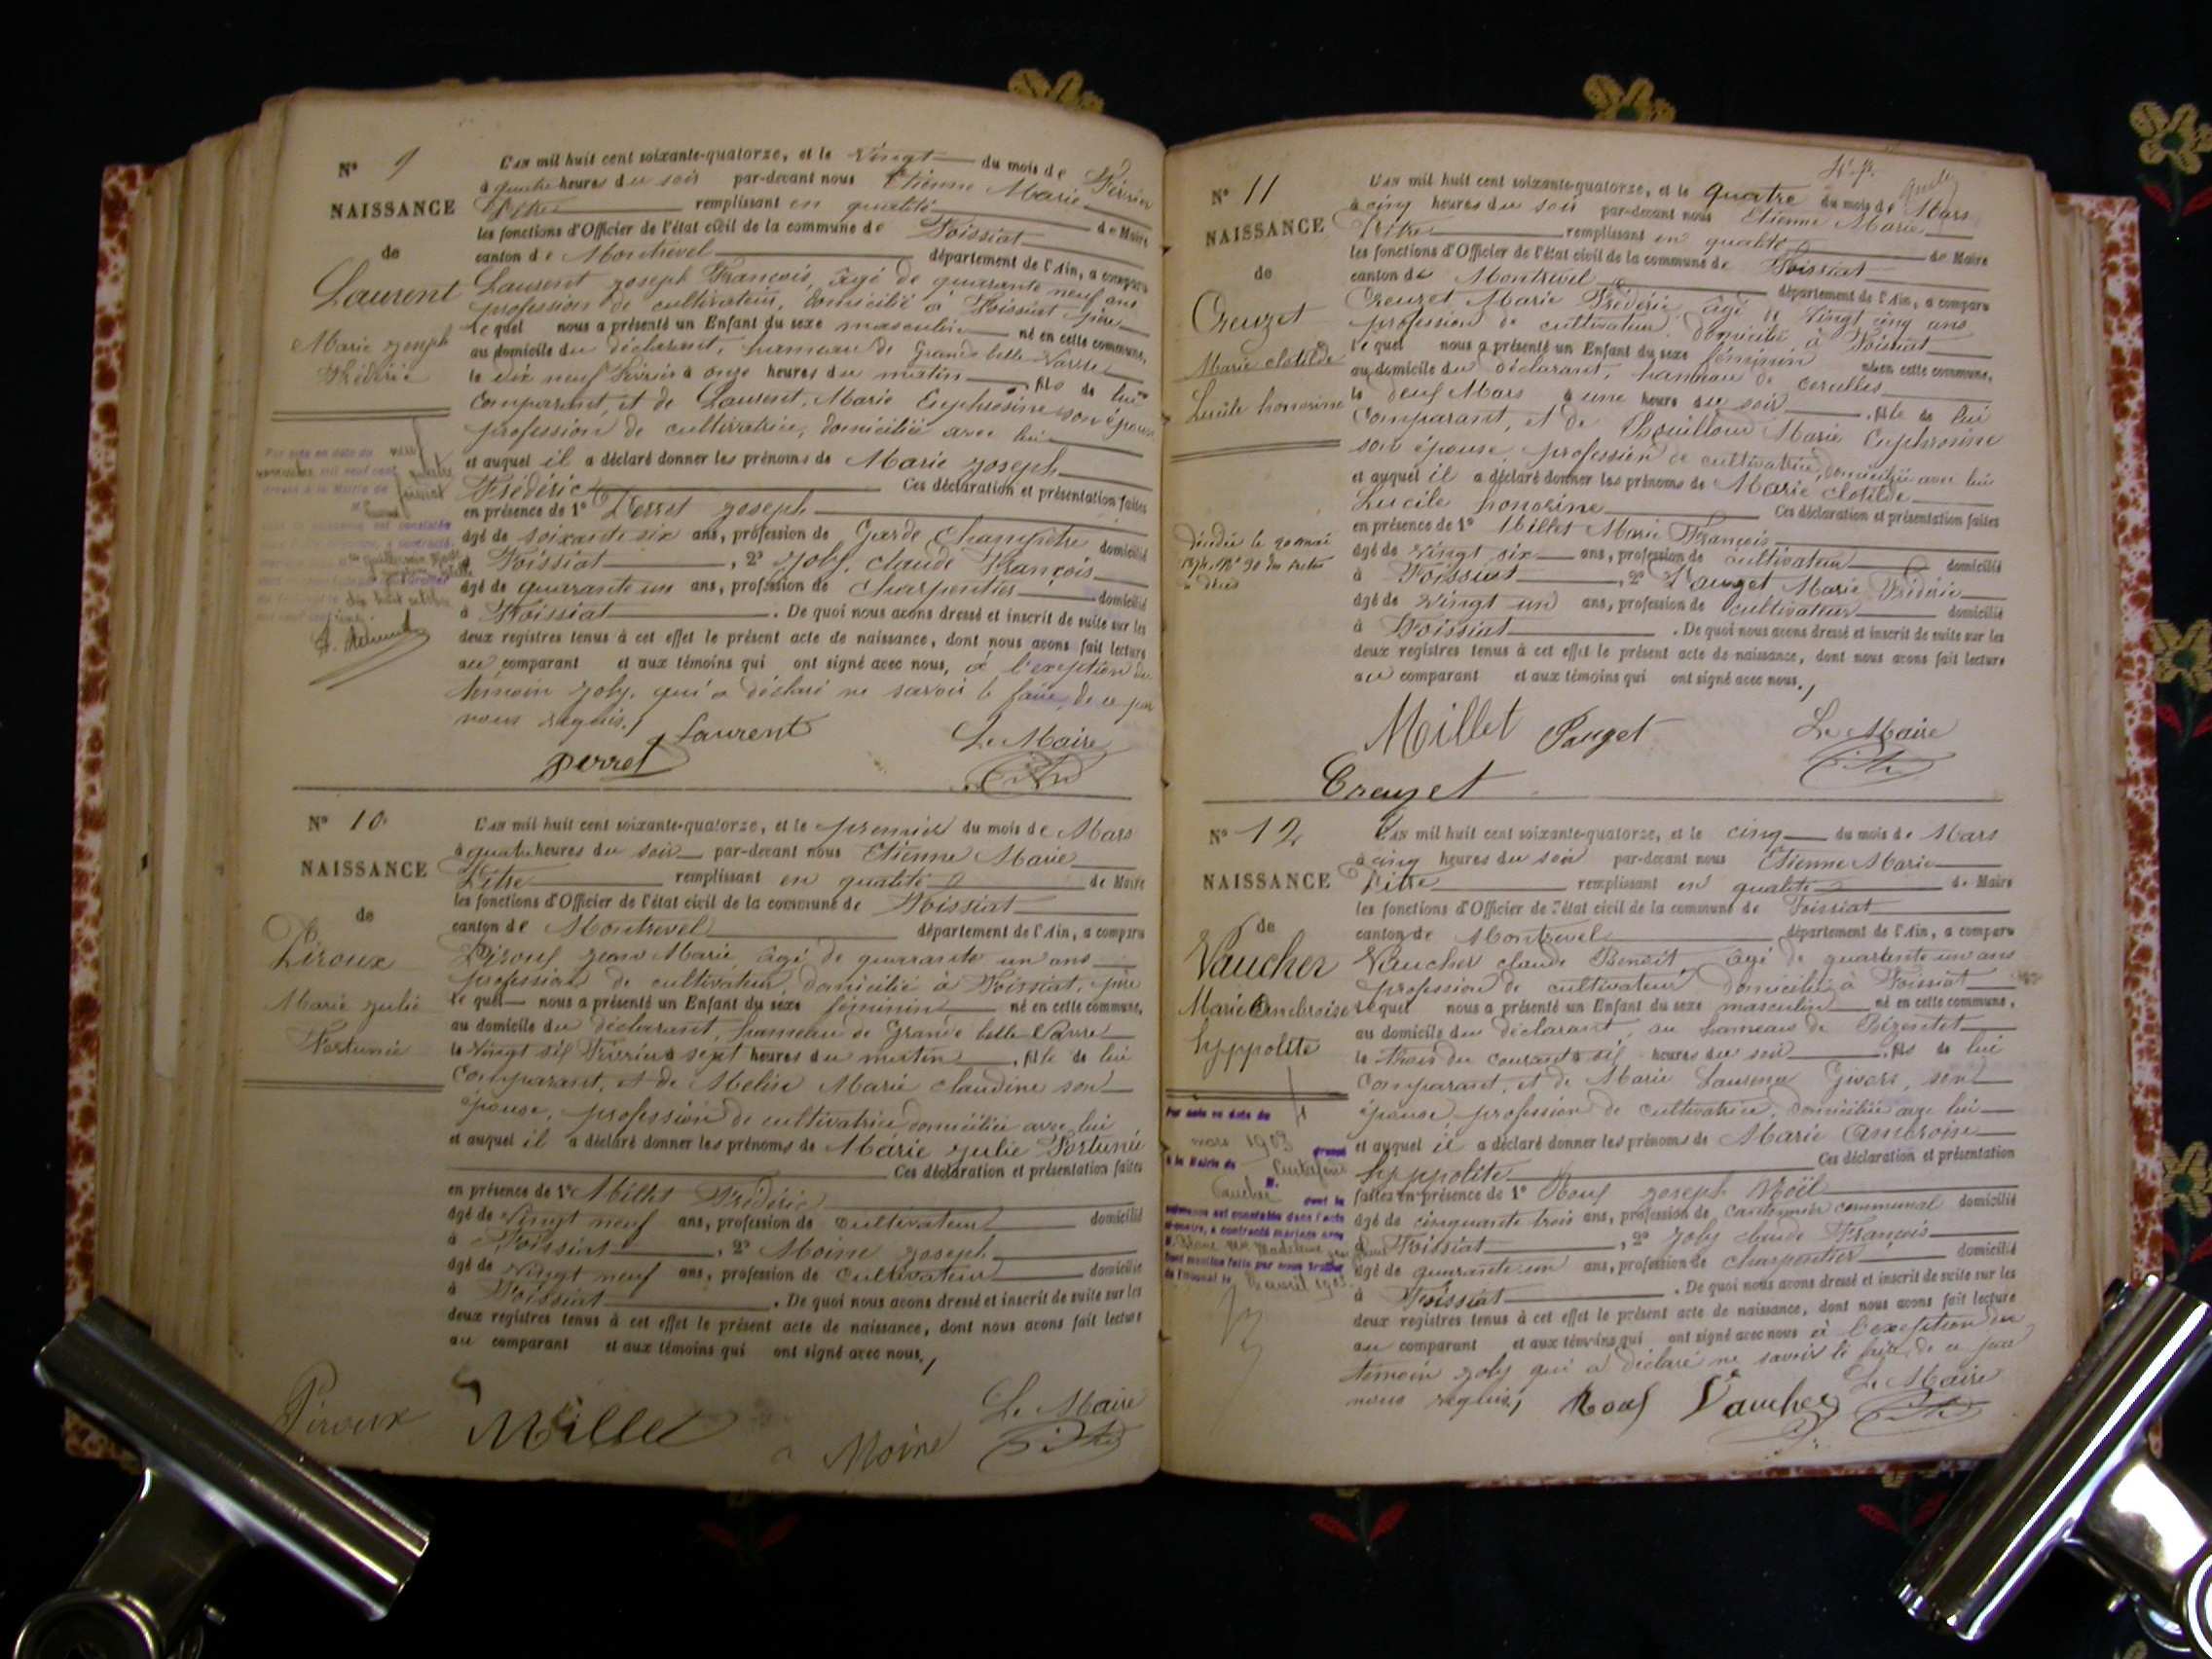 N° 9
NAISSANCE
de
Laurent
Marie Joseph
Frédéric
L'an mil huit cent soixante-quatorze, et le vingt du mois de Février
à quatre heures du soir par-devant nous Etienne Marie
Pitre remplissant en qualité de Maire
les fonctions d'Officier de l'état civil de la commune de Foissiat
canton de Montrevel département de l'Ain, a comparu
Laurent Joseph François, âgé de quarante neuf ans
profession de cultivateur, domicilié à Foissiat père
lequel nous a présenté un Enfant du sexe masculin né en cette commune,
au domicile du déclarant, hameau de Grande belle Varre
le dix neuf Février à onze heures du matin, fils de lui
comparant, et de Laurent, Marie Euphrosine son épouse
profession de cultivatrice, domiciliée avec lui
et auquel il a déclaré donner les prénoms de Marie Joseph
Frédéric Ces déclaration et présentation faites
en présence de 1° Perret Joseph
âgé de soixante six ans, profession de Garde Champêtre domicilié
à Foissiat, 2° Joly, claude François
âgé de quarante un ans, profession de charpentier domicilié
à Foissiat. De quoi nous avons dressé et inscrit de suite sur les
deux registres tenus à cet effet le présent acte de naissance, dont nous avons fait lecture
au comparant et aux témoins qui ont signé avec nous, à l'exception du
témoin Joly, qui a déclaré ne savoir le faire, de ce par
nous requis.
Laurent
Perret
Le Maire
N° 10
NAISSANCE
de
Piroux
Marie Julie
Fortunée
L'an mil huit cent soixante-quatorze, et le premier du mois de Mars
à quatre heures du soir par-devant nous Etienne Marie
Pitre remplissant en qualité de Maire
les fonctions d'Officier de l'état civil de la commune de Foissiat
canton de Montrevel département de l'Ain, a comparu
Piroux Jean Marie, âgé de quarante un ans
profession de cultivateur, domicilié à Foissiat, père
lequel nous a présenté un Enfant du sexe féminin né en cette commune,
au domicile du déclarant, hameau de Grande belle Varre
le vingt six Février à sept heures du matin, fille de lui
comparant, et de Marie claudine son
épouse, profession de cultivatrice domiciliée avec lui
et auquel il a déclaré donner les prénoms de Marie Julie Fortunée
Ces déclaration et présentation faites
en présence de 1° Millet Frédéric
âgé de vingt neuf ans, profession de cultivateur domicilié
à Foissiat, 2° Moine Joseph
âgé de vingt neuf ans, profession de cultivateur domicilié
à Foissiat. De quoi nous avons dressé et inscrit de suite sur les
deux registres tenus à cet effet le présent acte de naissance, dont nous avons fait lecture
au comparant et aux témoins qui ont signé avec nous.
Piroux Millet Moine
Le Maire
N° 11
NAISSANCE
de
Creuzet
Marie clotilde
Lucile honorine
L'an mil huit cent soixante-quatorze, et le quatre du mois de Mars
à cinq heures du soir par-devant nous Etienne Marie
Pitre remplissant en qualité de Maire
les fonctions d'Officier de l'état civil de la commune de Foissiat
canton de Montrevel département de l'Ain, a comparu
Creuzet Marie Frédéric, âgé de vingt cinq ans
profession de cultivateur, domicilié à Foissiat
lequel nous a présenté un Enfant du sexe féminin né en cette commune,
au domicile du déclarant, hameau de
le deux Mars à une heure du soir, fille de lui
comparant, et de Marie Euphrosine
son épouse, profession de cultivatrice, domiciliée avec lui
et auquel il a déclaré donner les prénoms de Marie clotilde
Lucile honorine Ces déclaration et présentation faites
en présence de 1° Millet Marie François
âgé de vingt six ans, profession de cultivateur domicilié
à Foissiat, 2° Pauget Marie Frédéric
âgé de vingt un ans, profession de cultivateur domicilié
à Foissiat. De quoi nous avons dressé et inscrit de suite sur les
deux registres tenus à cet effet le présent acte de naissance, dont nous avons fait lecture
au comparant et aux témoins qui ont signé avec nous.
Millet Pauget
Le Maire
Creuzet
N° 12
NAISSANCE
de
Vaucher
Marie Ambroise
hyppolite
L'an mil huit cent soixante-quatorze, et le cinq du mois de Mars
à cinq heures du soir par-devant nous Etienne Marie
Pitre remplissant en qualité de Maire
les fonctions d'Officier de l'état civil de la commune de Foissiat
canton de Montrevel département de l'Ain, a comparu
Vaucher claude Benoit âgé de quarante un ans
profession de cultivateur domicilié à Foissiat
lequel nous a présenté un Enfant du sexe masculin né en cette commune,
au domicile du déclarant, au hameau de
le trois du courant à six heures du soir, fils de lui
comparant, et de Marie, son
épouse, profession de cultivatrice, domiciliée avec lui
et auquel il a déclaré donner les prénoms de Marie Ambroise
hyppolite Ces déclaration et présentation
faites en présence de 1° Roux Joseph Noël
âgé de cinquante trois ans, profession de cantonnier communal domicilié
à Foissiat, 2° Joly claude François
âgé de quarante un ans, profession de charpentier domicilié
à Foissiat. De quoi nous avons dressé et inscrit de suite sur les
deux registres tenus à cet effet le présent acte de naissance, dont nous avons fait lecture
au comparant et aux témoins qui ont signé avec nous à l'exception du
témoin Joly qui a déclaré ne savoir le faire, de ce par
nous requis,
Roux Vaucher
Le Maire
Par acte en date du
mars 1903
à la Mairie de